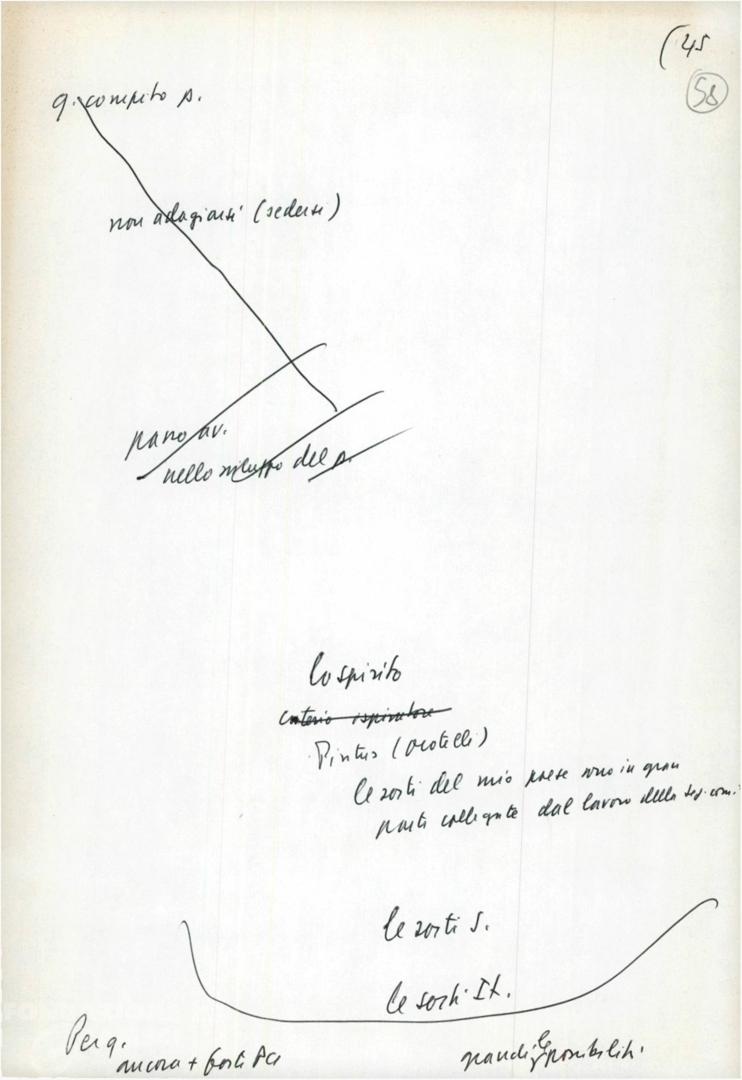 (45
58
q. compito p.
non adagiarsi (sedersi)
passo av.
nello sviluppo del p.
lo spirito
criterio ispiratore
Pintus (ocotelli)
le sorti del mio paese sono in gran
parte collegate dal lavoro della sez. com.
le sorti S.
le sorti It.
Per q.
ancora + forti PCI
grandi le possibilità.